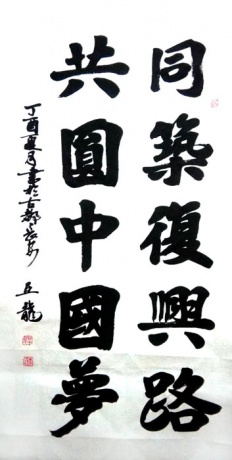 同築復興路
共圓中國夢
丁酉夏月書於古都長安
五龍